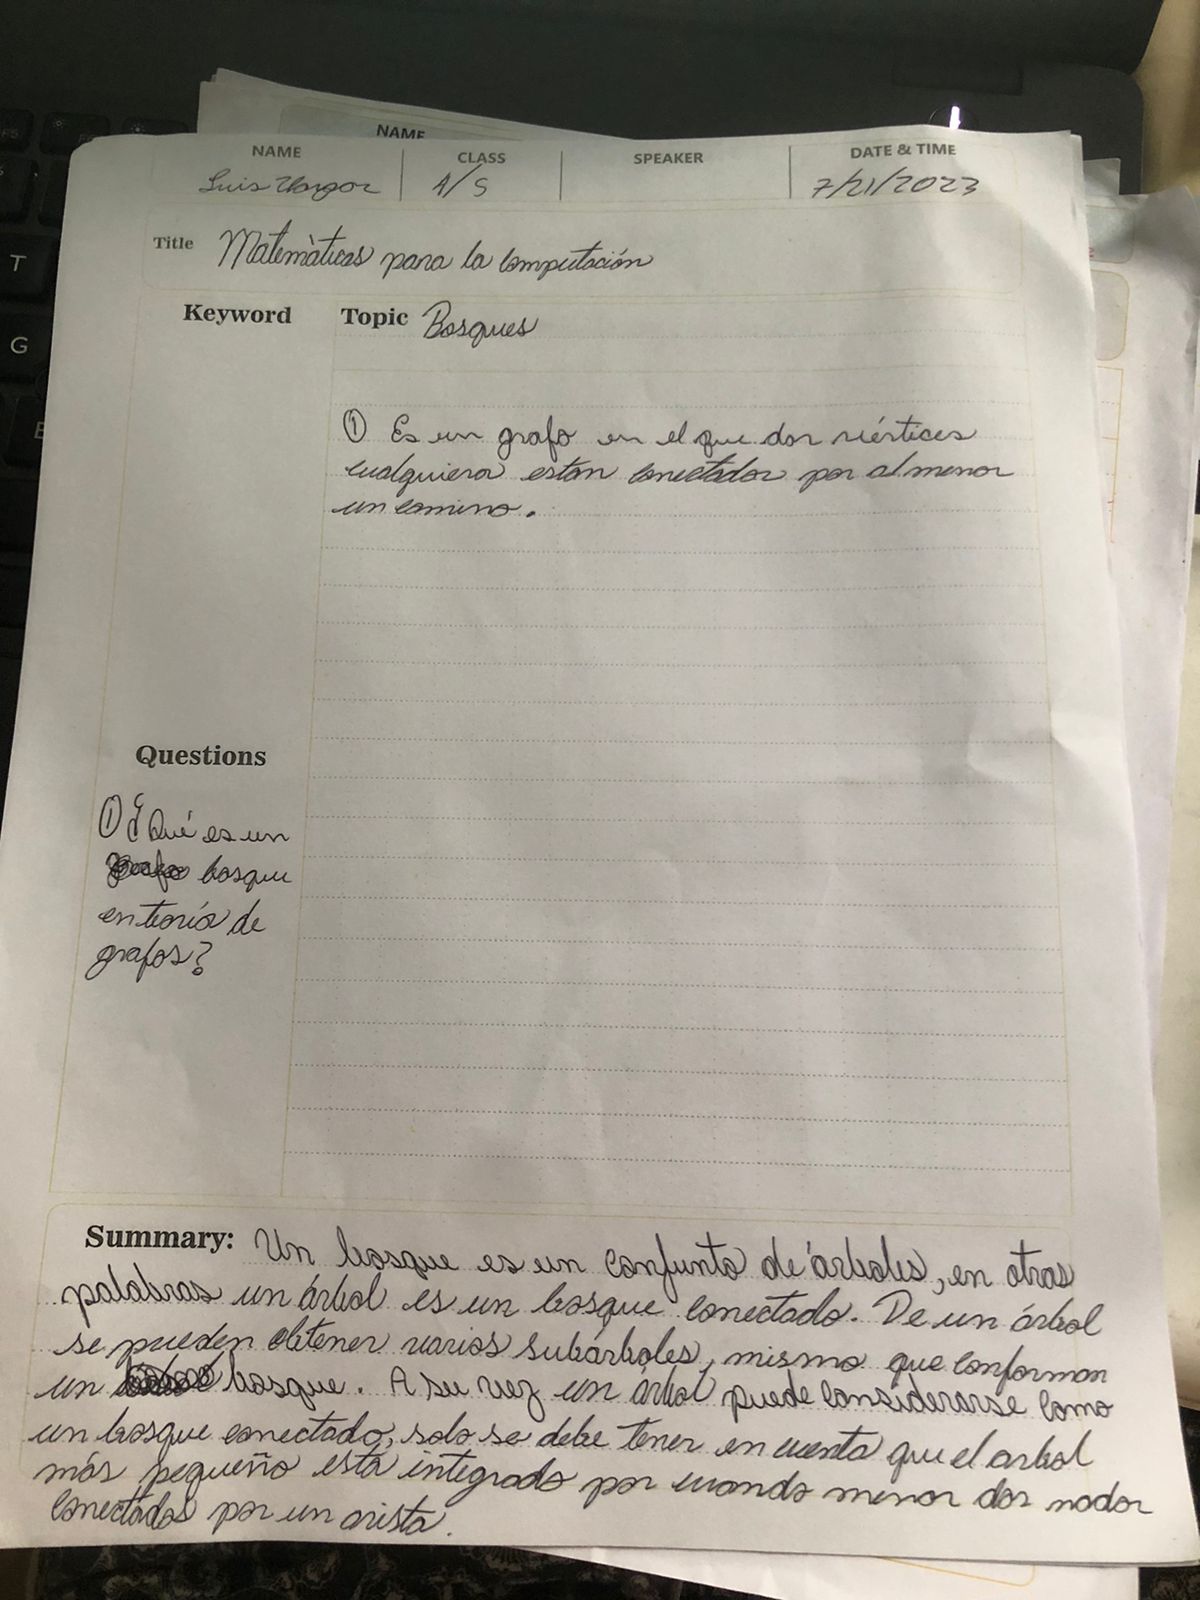 NAME
NAME CLASS SPEAKER DATE & TIME
Luis A/S 7/21/2023
Title Matemàticas para la computación
Keyword Topic Bosques
① Es un grafo en el que dos vértices
cualquiera estan conectados por al menos
un camino.
Questions
① ¿Qué es un
bosque
en teoría de
grafos?
Summary: Un bosque es un conjunto de árboles, en otras
palabras un árbol es un bosque conectado. De un árbol
se pueden obtener varios subárboles, mismo que conforman
un bosque. A su vez un árbol puede considerarse como
un bosque conectado, solo se debe tener en cuenta que el arbol
más pequeño está integrado por cuando menos dos nodos
conectados por un arista.
T
G